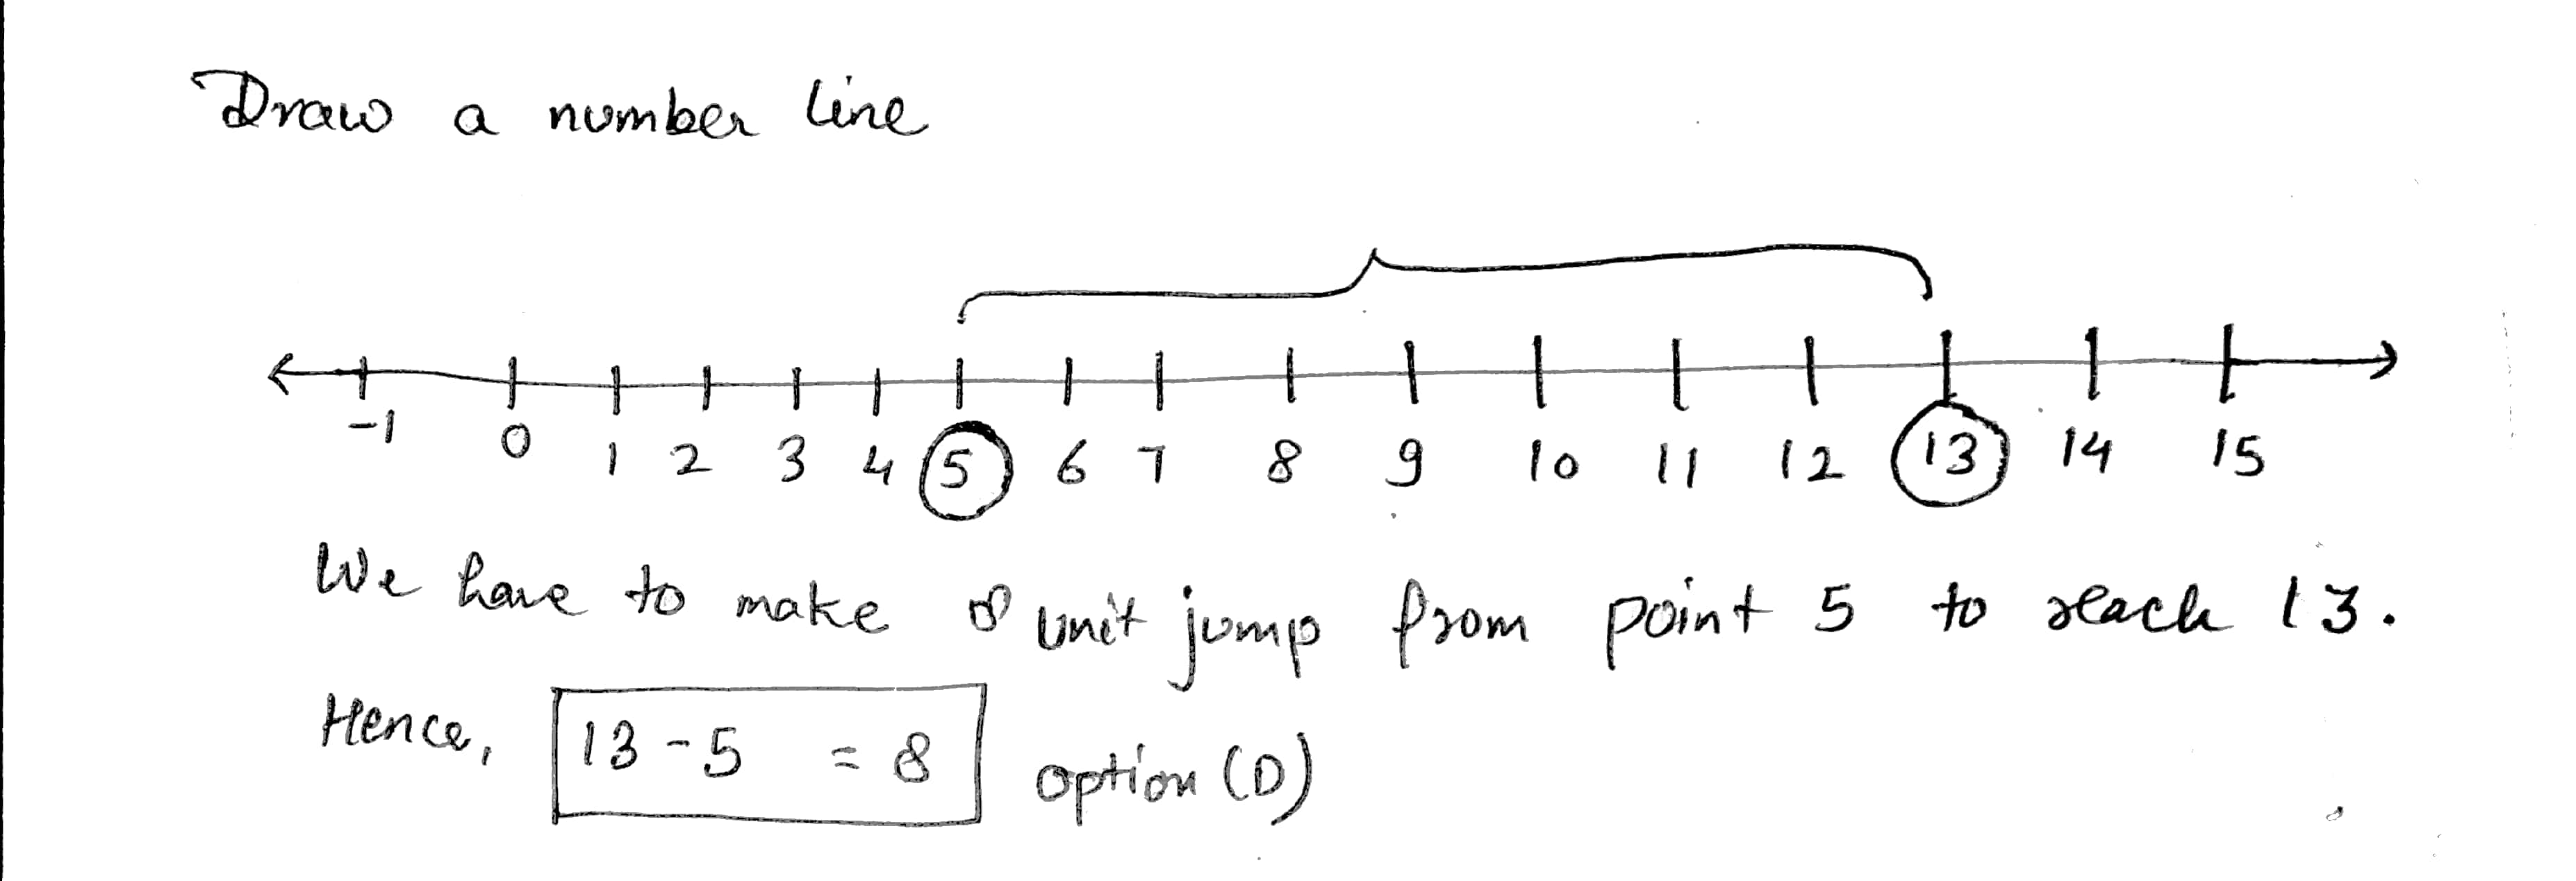 Draw a number line
-1 0 1 2 3 4 5 6 7 8 9 10 11 12 13 14 15
We have to make 8 unit jump from point 5 to reach 13.
Hence, 13 - 5 = 8 option (D)